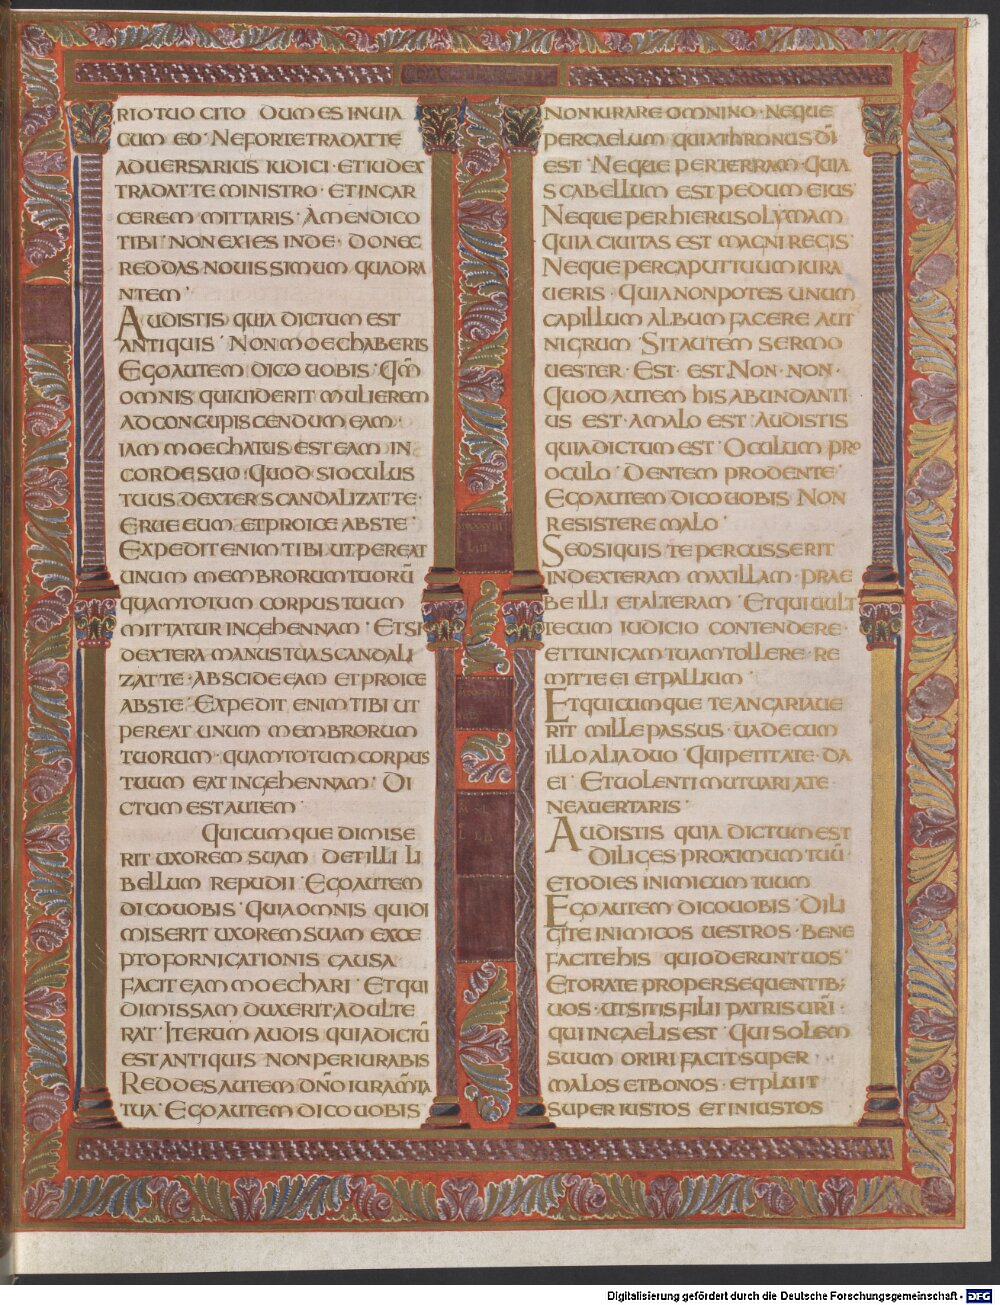 RIO TUO CITO DUM ES IN UIA
CUM EO· NE FORTE TRADAT TE
ADUERSARIUS IUDICI· ET IUDEX
TRADAT TE MINISTRO· ET IN CAR
CEREM MITTARIS· AMEN DICO
TIBI· NON EXIES INDE· DONEC
REDDAS NOUISSIMUM QUADRA
NTEM·
AUDISTIS QUIA DICTUM EST
ANTIQUIS· NON MOECHABERIS
EGO AUTEM DICO UOBIS· QM̄
OMNIS QUI UIDERIT MULIEREM
AD CONCUPISCENDUM EAM·
IAM MOECHATUS EST EAM IN
CORDE SUO· QUOD SI OCULUS
TUUS DEXTER SCANDALIZAT TE·
ERUE EUM ET PROICE ABS TE·
EXPEDIT ENIM TIBI UT PEREAT
UNUM MEMBRORUM TUORŪ
QUAM TOTUM CORPUS TUUM
MITTATUR IN GEHENNAM· ET SI
DEXTERA MANUS TUA SCANDALI
ZAT TE· ABSCIDE EAM ET PROICE
ABS TE· EXPEDIT ENIM TIBI UT
PEREAT UNUM MEMBRORUM
TUORUM· QUAM TOTUM CORPUS
TUUM EAT IN GEHENNAM· DI
CTUM EST AUTEM·
QUICUMQUE DIMISE
RIT UXOREM SUAM DET ILLI LI
BELLUM REPUDII· EGO AUTEM
DICO UOBIS· QUIA OMNIS QUI DI
MISERIT UXOREM SUAM EXCE
PTO FORNICATIONIS CAUSA
FACIT EAM MOECHARI· ET QUI
DIMISSAM DUXERIT· ADULTE
RAT· ITERUM AUDIS QUIA DICTŪ
EST ANTIQUIS NON PERIURABIS
REDDES AUTEM DÑO IURAM̄TA
TUA· EGO AUTEM DICO UOBIS
NON IURARE OMNINO· NEQUE
PER CAELUM QUIA THRONUS DĪ
EST· NEQUE PER TERRAM· QUIA
SCABELLUM EST PEDUM EIUS·
NEQUE PER HIERUSOLYMAM
QUIA CIUITAS EST MAGNI REGIS·
NEQUE PER CAPUT TUUM IURA
UERIS· QUIA NON POTES UNUM
CAPILLUM ALBUM FACERE AUT
NIGRUM· SIT AUTEM SERMO
UESTER· EST· EST, NON· NON·
QUOD AUTEM HIS ABUNDANTI
US EST· A MALO EST· AUDISTIS
QUIA DICTUM EST· OCULUM PRO
OCULO· DENTEM PRO DENTE·
EGO AUTEM DICO UOBIS NON
RESISTERE MALO·
SED SI QUIS TE PERCUSSERIT
IN DEXTERAM MAXILLAM· PRAE
BE ILLI ET ALTERAM· ET QUI UULT
TECUM IUDICIO CONTENDERE·
ET TUNICAM TUAM TOLLERE· RE
MITTE EI ET PALLIUM·
ET QUICUMQUE TE ANGARIAUE
RIT MILLE PASSUS· UADE CUM
ILLO ALIA DUO· QUI PETIT A TE· DA
EI· ET UOLENTI MUTUARI A TE·
NE AUERTARIS·
AUDISTIS QUIA DICTUM EST
DILIGES PROXIMUM TUŪ·
ET ODIES INIMICUM TUUM
EGO AUTEM DICO UOBIS· DILI
GITE INIMICOS UESTROS· BENE
FACITE HIS QUI ODERUNT UOS·
ET ORATE PRO PERSEQUENTIB;
UOS· UT SITIS FILII PATRIS URĪ·
QUI IN CAELIS EST· QUI SOLEM
SUUM ORIRI FACIT SUPER
MALOS ET BONOS· ET PLUIT
SUPER IUSTOS ET INIUSTOS
Digitalisierung gefördert durch die Deutsche Forschungsgemeinschaft - DFG